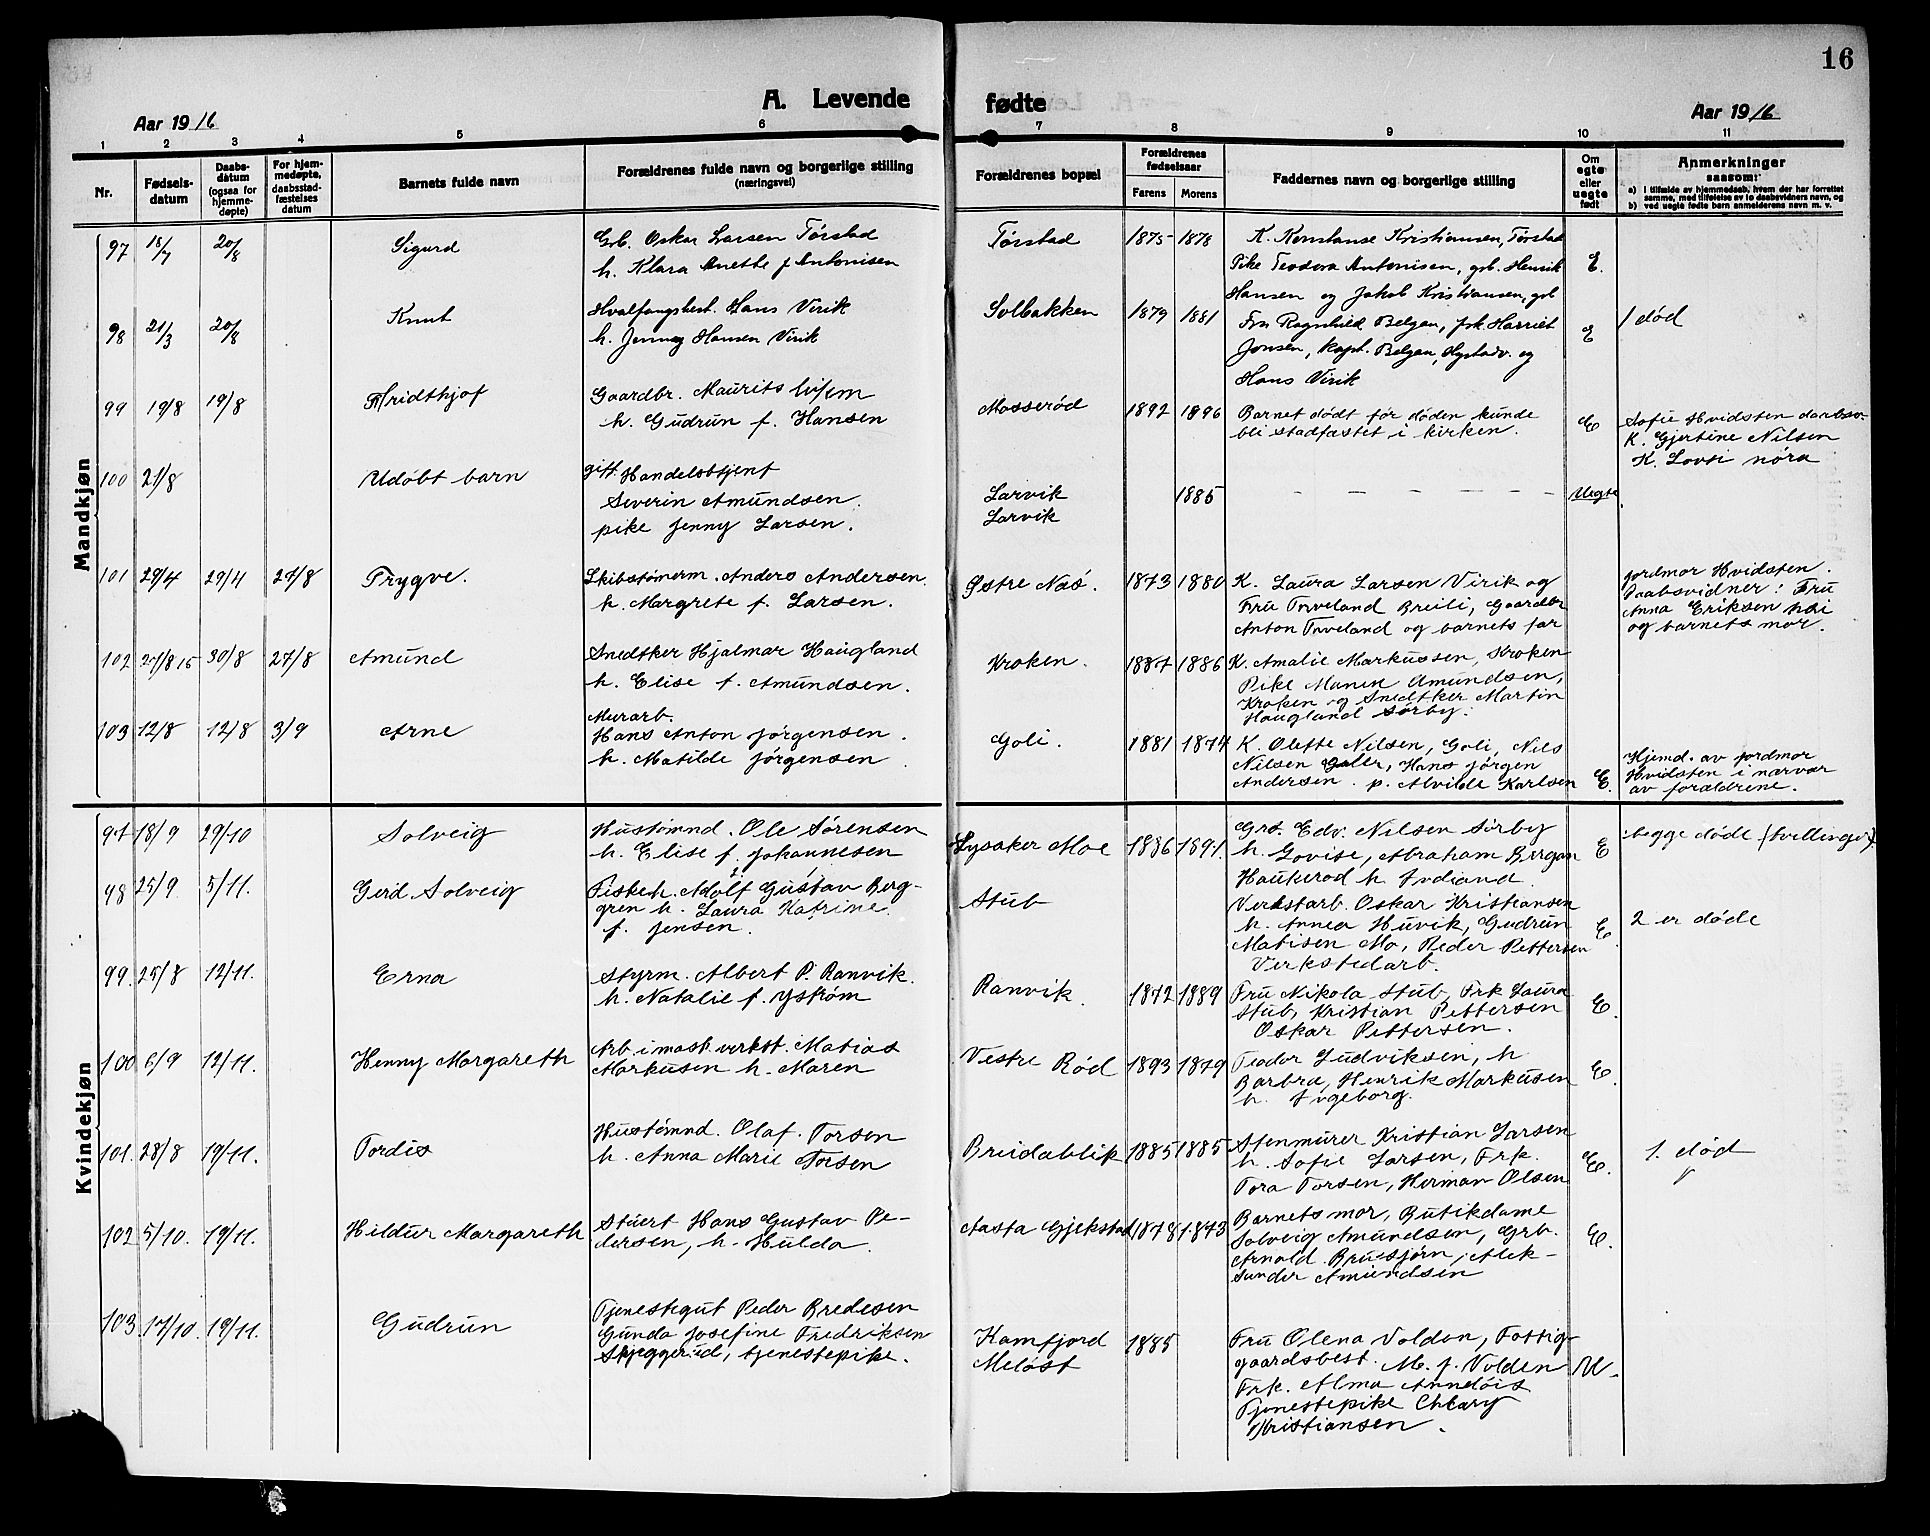 16
A. Levende fødte
Aar 1916
Aar 1916
1 2 3 4 5 6 7 8 9 10 11
Nr.
Fødsels-
datum
Daabs-
datum
(ogsaa for
hjemme-
døpte)
For hjem-
medøpte,
daabsstad-
fæstelses
datum
Barnets fulde navn
Forældrenes fulde navn og borgerlige stilling
(næringsvei)
Forældrenes bopæl
Forældrenes
fødselsaar
Farens Morens
Faddernes navn og borgerlige stilling
Om
egte
eller
uegte
født
Anmerkninger
saasom:
a) i tilfælde av hjemmedaab, hvem der har forrettet
samme, med tilføielse av to daabsvidners navn, og
b) ved uegte fødte barn anmelderens navn m. v.
Mandkjøn
97 18/7 20/8 Sigurd
Grb. Oskar Larsen Törstad
h. Klara Anette f Antonisen
Törstad 1875 1878
K. Konstanse Kristiansen, Törstad
Pike Teodora Antonisen, grb. Henrik
Hansen og Jakob Kristiansen, grb
E.
98 21/3 20/8 Knut
Hvalfangstbest. Hans Virik
h. Jenny Hansen Virik
Solbakken 1879 1881
Fru Ragnhild Belgau, frk Harriet
Jonsen, Kapt. Belgau, Nystadv. og
Hans Virik
E
1 död
99 19/8 19/8 Fridthjof
Gaardbr. Maurits
h. Gudrun f. Hansen
Mosserød 1892 1896
Barnet dödt för döden kunde
bli stadfæstet i kirken.
E
Sofie Hvidsten daabsv.
K. Gjertine Nilsen
K. Lovsi nöra
100 21/8 Udöbt barn
gift. Handelsbtjent
Severin Amundsen.
pike Jenny Larsen.
Larvik
Larvik
1885
– – – – – –
Uegte.
101 29/4 29/4 27/8 Trygve.
Skibstömerm. Anders Andersen.
h. Margrete f. Larsen.
Østre Nes. 1873 1880
K. Laura Larsen Virik og
Fru Tveland Breili, Gaardbr
Anton Tveland og barnets far
Jordmor Hvidsten.
Daabsvidner: Fru
Anna Eriksen
og barnets mor.
102 27/8 15 30/8 27/8 Amund
Snedtker Hjalmar Haugland
h. Elise f. Amundsen.
Kroken. 1887 1886
K. Amalie Markussen, Kroken
Pike Maren Amundsen,
Kroken og Snedtker Martin
Haugland Sörby.
103 12/8 12/8 3/9 Arne
Murarb.
Hans Anton Jörgensen.
h. Matilde Jörgensen
Goli. 1881 1874
K. Olefte Nilsen, Goli, Nils
Nilsen Goli, Hans Jörgen
Andersen. p. Alvilde Karlsen
E.
Hjemd. av jordmor
Hvidsten i nærvær
av forældrene.
Kvindekjøn
97 18/9 29/10 Solveig
Hustömnd. Ole Sörensen
h. Elise f. Johannesen
Lysaker Moe 1886 1891.
Grs. Edv. Nilsen Sörby
h. Lovise, Abraham Bergan
Haukerod h. Indiana.
E
begge döde (tvillinger)
98 25/9 5/11. Gerd Solveig
Fiskeh. Adolf Gustav Berg-
gren h. Laura Katrine.
f. Jensen.
Stub
Verkstarb. Oskar Kristiansen
h. Annea Huvik, Gudrun
Matisen Mo, Peder Pettersen
Verkstedarb.
E.
2 er döde
99. 25/8 12/11. Erna
Styrm. Albert P. Ranvik.
h. Natalie f. Yström
Ranvik. 1872 1889
Fru Nikola Stub, Frk Laura
Stub, Kristian Pettersen
Oskar Pettersen.
E.
100 6/9 12/11. Henny Margareth
Arb. i mask. verkst. Matias
Markusen h. Maren
Vestre Röd 1893 1879
Teodor Ludviksen, h
Barbra, Henrik Markusen
h. Ingeborg.
E.
101. 28/8 19/11. Tordis
Hustömnd. Olaf. Torsen
h. Anna Marie Torsen
Breidablik 1885 1885
Stenmurer Kristian Larsen
h. Sofie Larsen, Frk.
Tora Torsen, Herman Olsen
E.
1. död
102 5/10. 19/11. Hildur Margareth
Stuert Hans Gustav Pe-
dersen, h. Hulda.
Aasta Gjekstad 1878 1873
Barnets mor, Butikdame
Solveig Amundsen, Grb.
Arnold Brusjörn, Alek-
sander Amundsen
E.
103. 17/10. 19/11. Gudrun
Tjenestegut Peder Bredesen
Gunda Josefine Fredriksen
Skjeggerud, tjenestepike.
Kamfjord
Melöst
1885
Fru Olena Volden, Fattig-
gaardsbest. M. f. Volden
Frk. Alma
Tjenestepike
Kristiansen.
U.